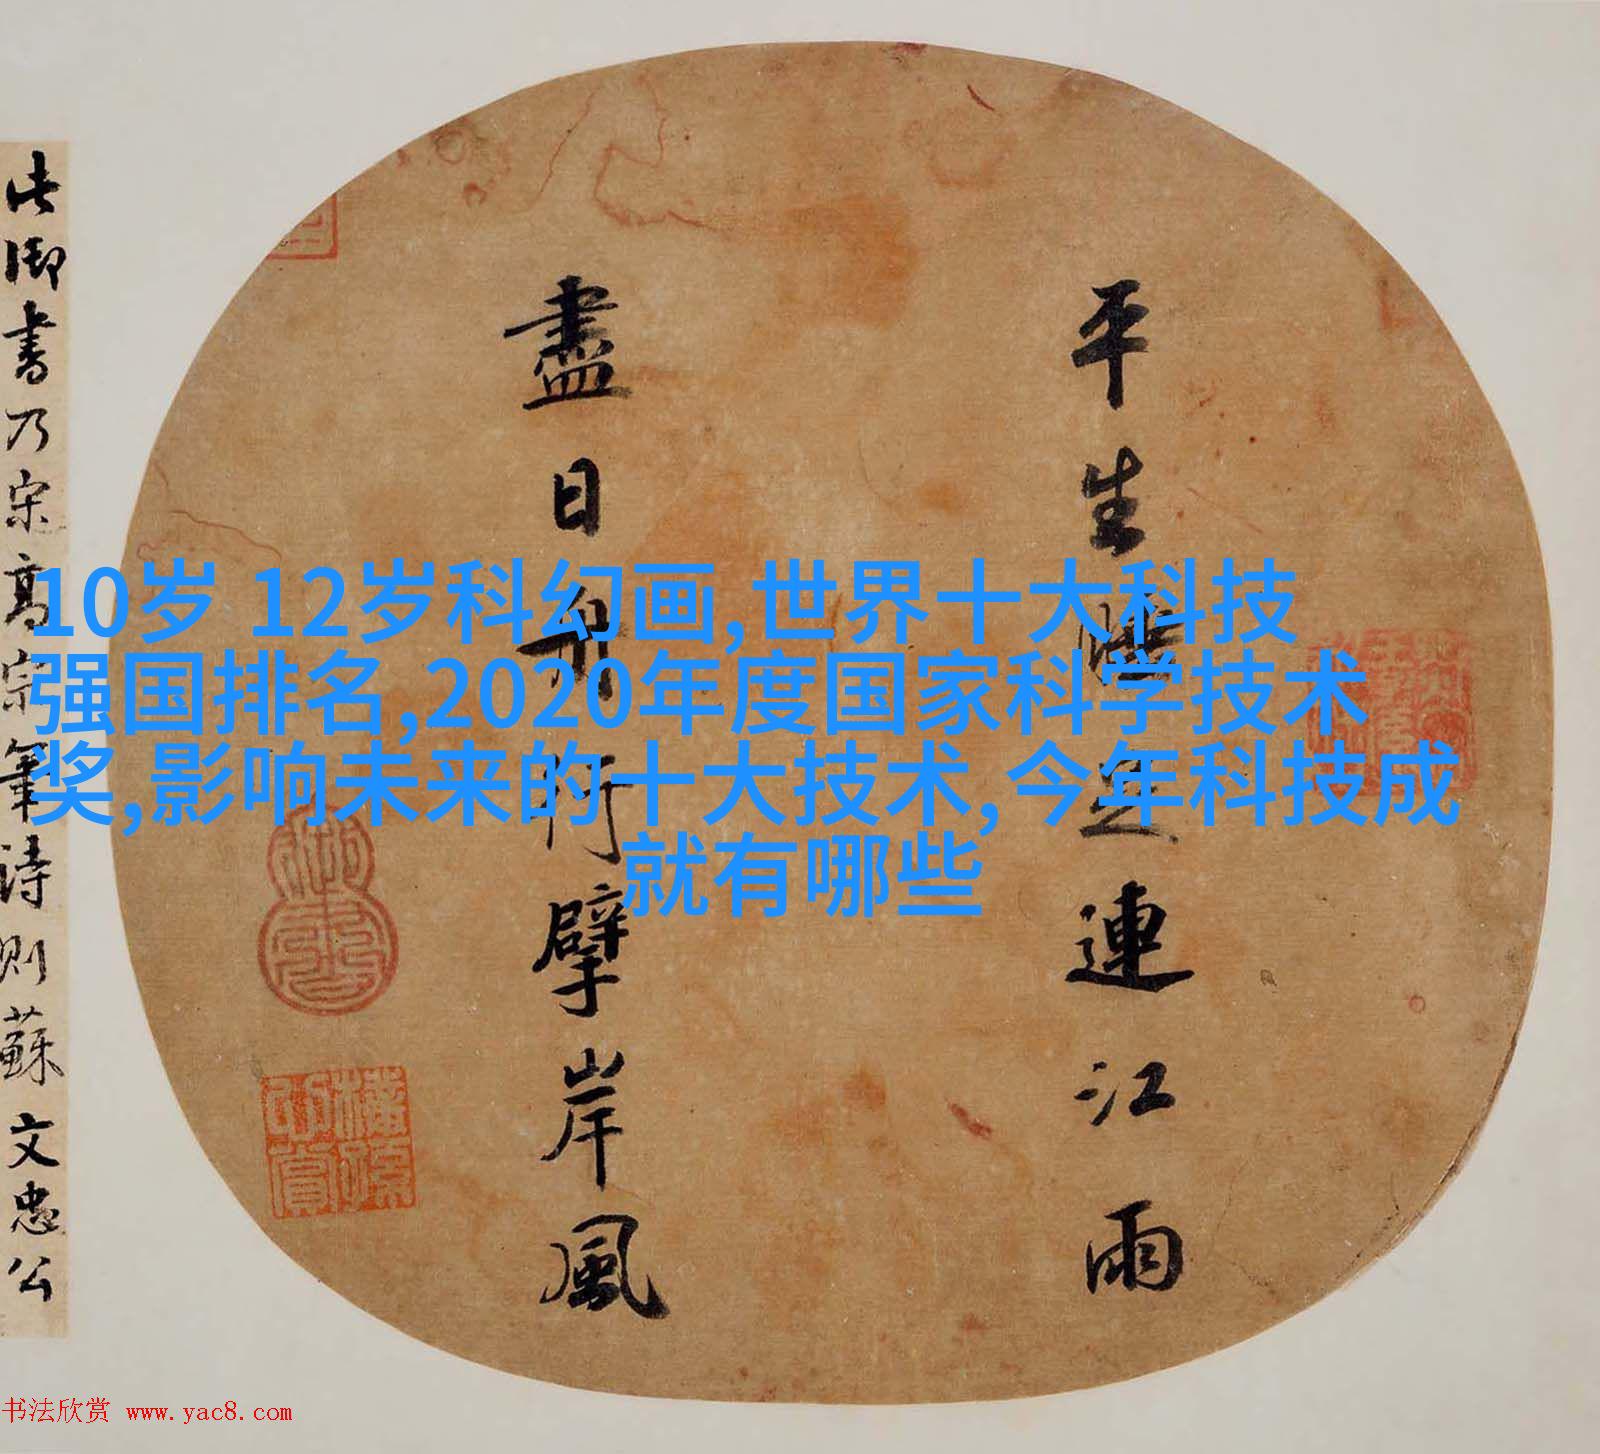 平生睡足連江雨
盡日舟行擘岸風
此御書乃宋高宗筆詩則蘇文忠公
10岁 12岁科幻画,世界十大科技
强国排名,2020年度国家科学技术
奖,影响未来的十大技术,今年科技成
就有哪些
书法欣赏 www.yac8.com